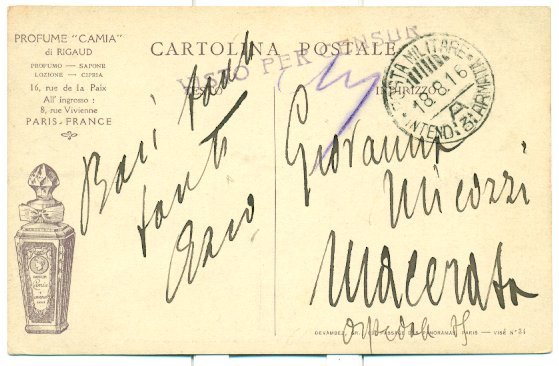 PROFUME "CAMIA"
di RIGAUD
PROFUMO — SAPONE
LOZIONE — CIPRIA
16, rue de la Paix
All' ingrosso :
8, rue Vivienne
PARIS-FRANCE
CARTOLINA POSTALE
VISTO PER CENSUR
TESTO
INDIRIZZO
POSTA MILITARE
18.8.16
A
INTEND. 3ª ARMATA
Baci
tanti
Giovanni
Micozzi
Macerata
DEVAMBEZ, GR., PASSAGE DES PANORAMAS, PARIS — VISÉ Nº 34